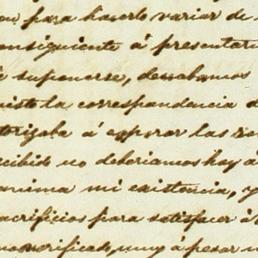 para hacerlo variar de
consiguiente á presentar
suponerse, deseabamos
la correspondencia d
á esponer las
recibido no deberiamos hoy á
anima mi existencia, y
sacrificios para satisfacer á
muy á pesar